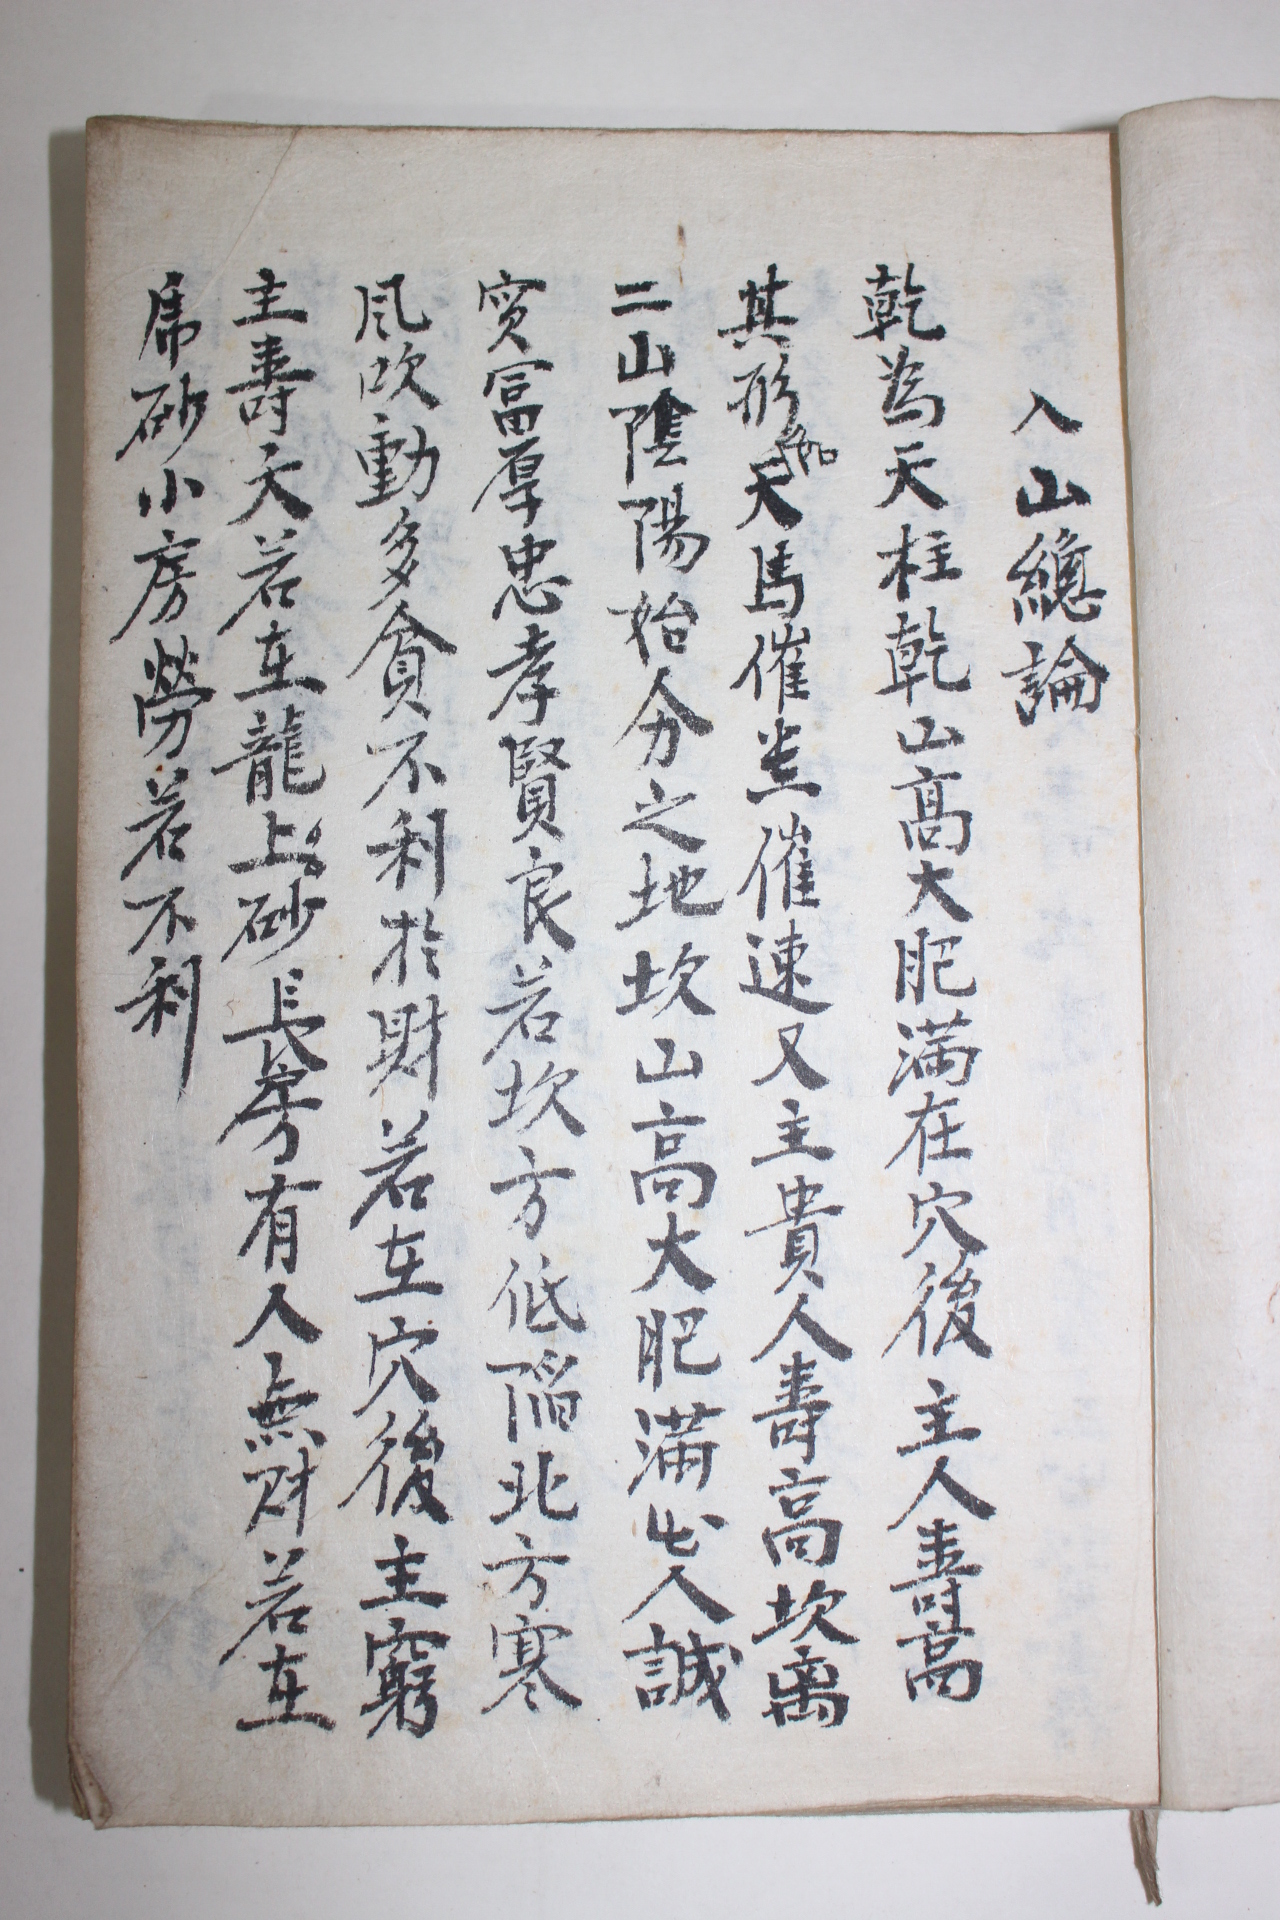 入山總論
乾為天柱乾山高大肥滿在穴後主人壽高
其形如天馬催〿催速又主貴人壽高坎离
二山陰陽始分之地坎山高大肥滿出人誠
实富厚忠孝賢良若坎方低陷北方寒
風吹動多貪不利於財若在穴後主窮
主壽夭若在龍上砂長房有人無財若在
虎砂小房勞若不利